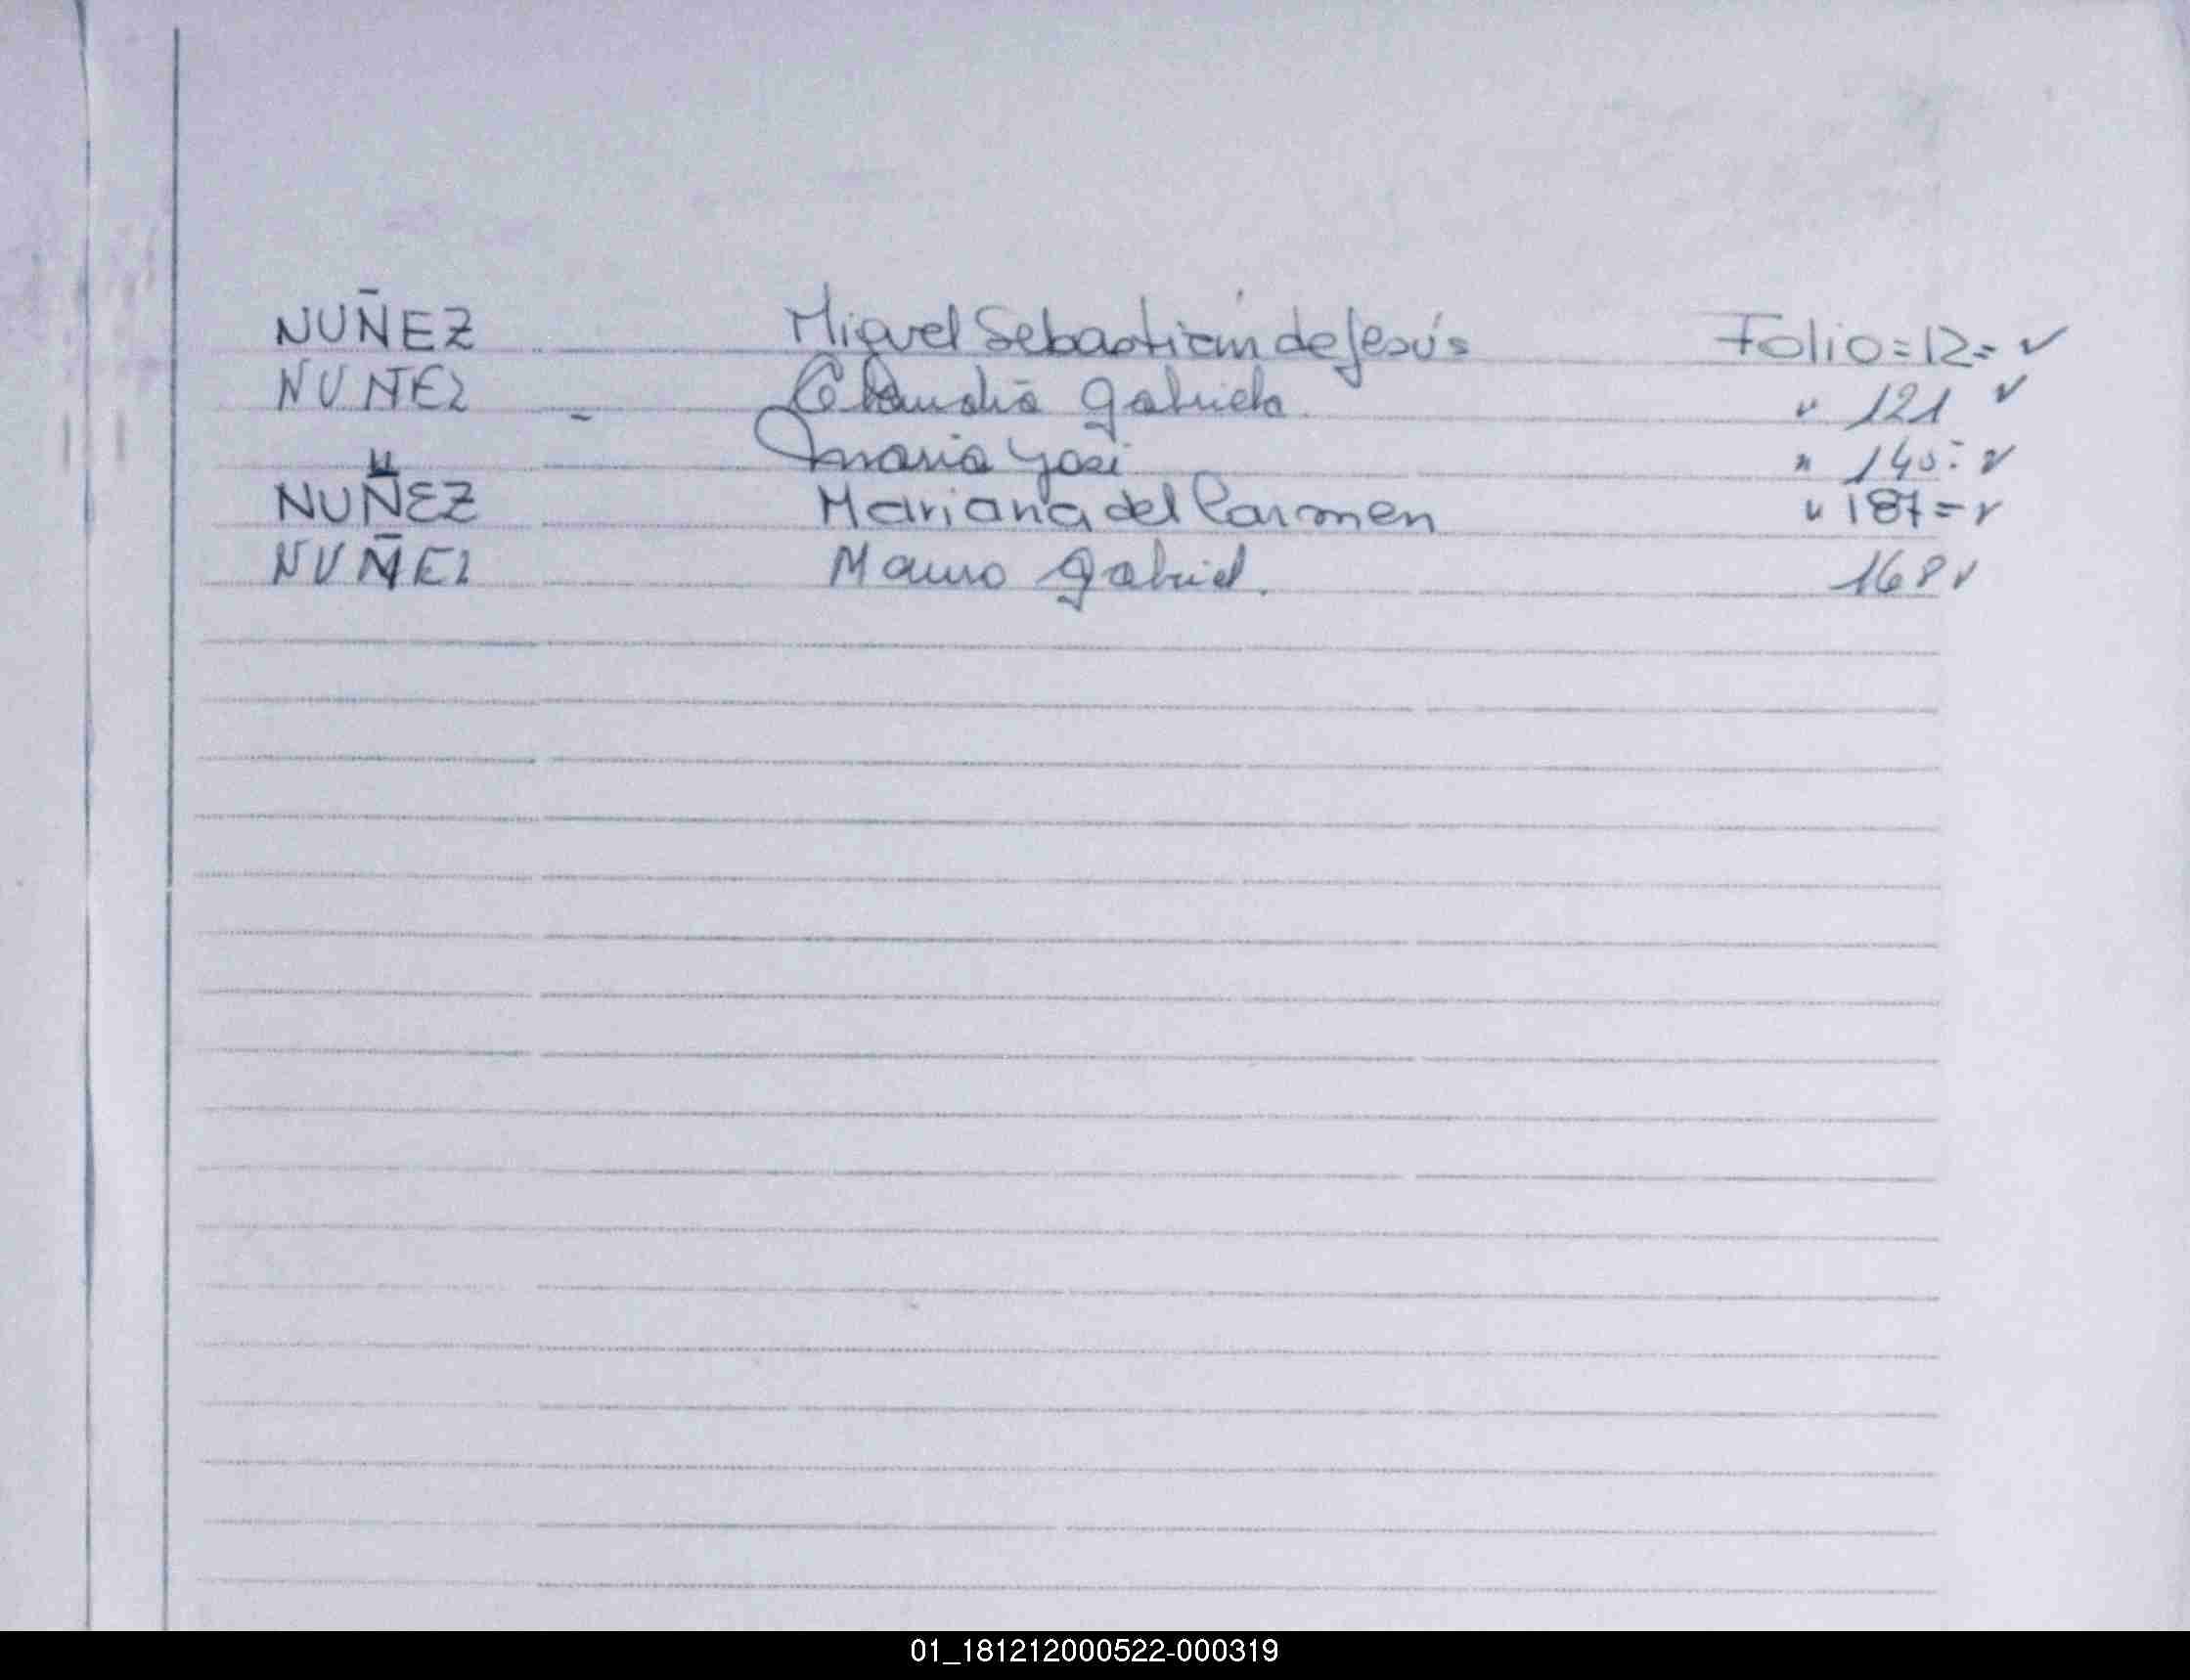 NUÑEZ Miguel Sebastián de Jesús Folio = 12 = ✓
NUÑEZ - Claudia Gabriela " 121 ✓
" Maria José " 145 = ✓
NUÑEZ Mariana del Carmen " 187 = ✓
NUÑEZ Mauro Gabriel. 168 ✓
01_181212000522-000319